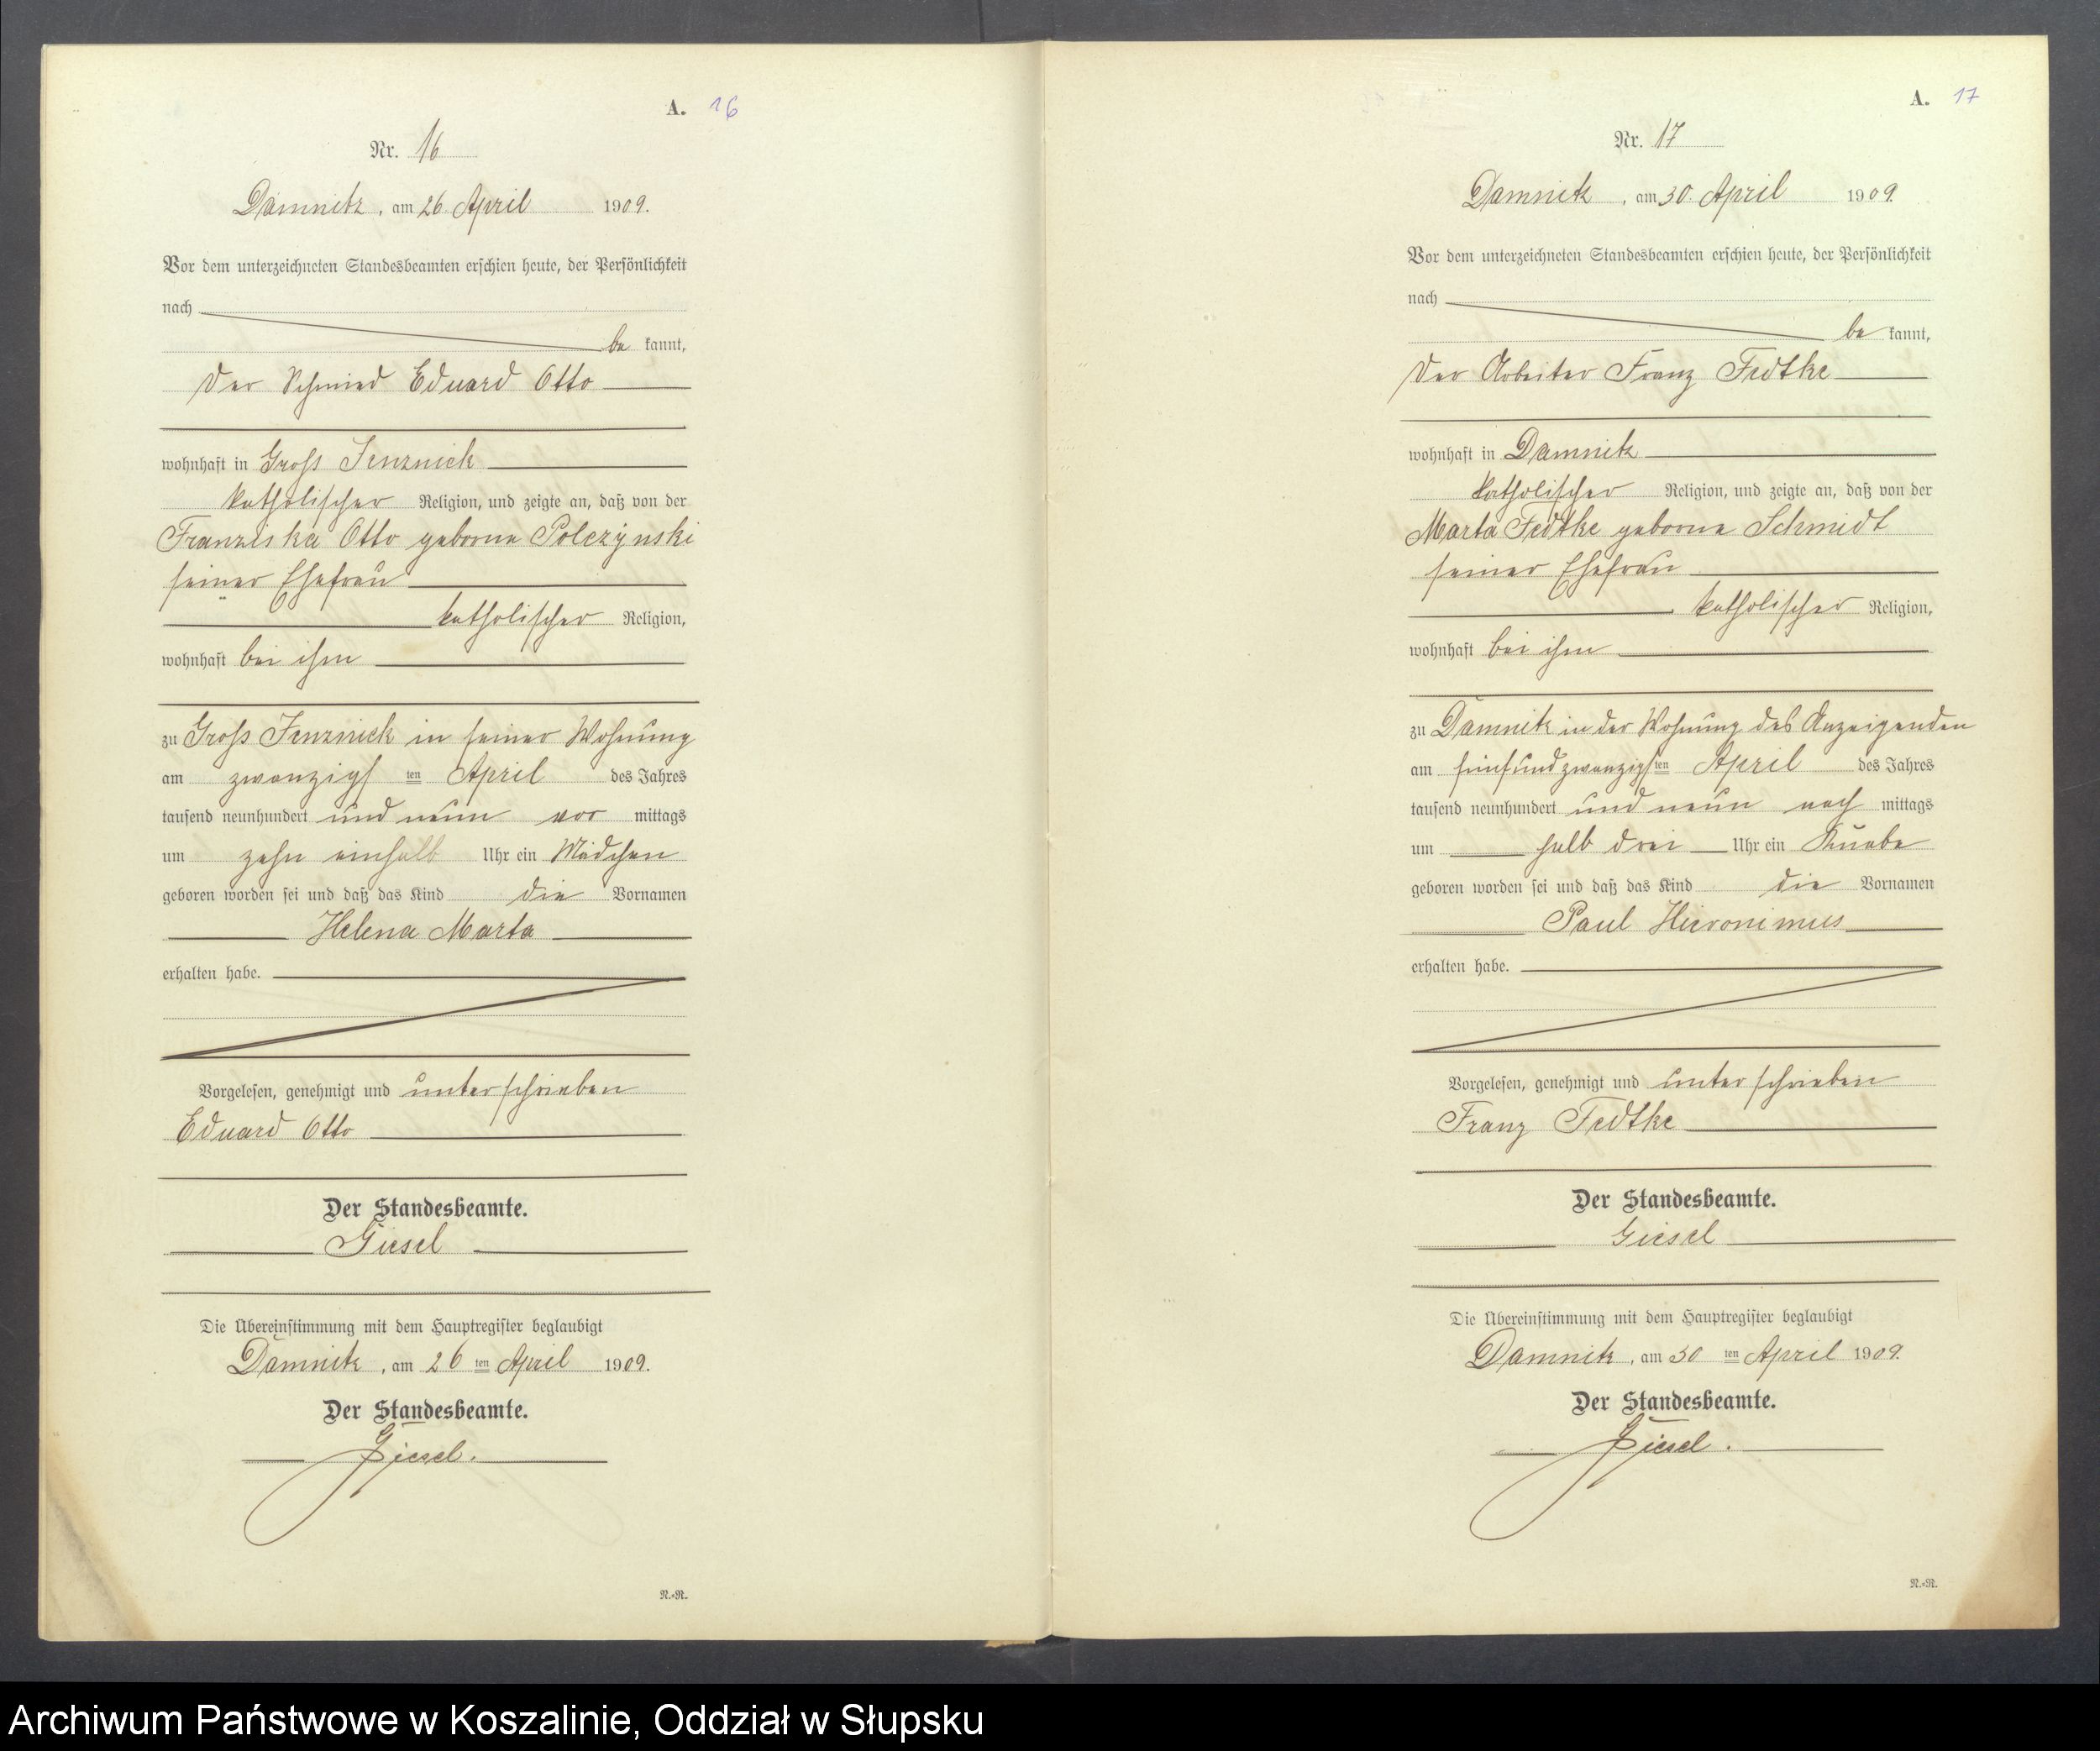 A. 16
Nr. 16
Damnitz, am 26 April 1909.
Vor dem unterzeichneten Standesbeamten erschien heute, der Persönlichkeit
nach
be kannt,
der Schmied Eduard Otto
wohnhaft in Groß Jenznick
katholischer Religion, und zeigte an, daß von der
Franziska Otto geborne Polczynski
seiner Ehefrau
katholischer Religion,
wohnhaft bei ihm
zu Groß Jenznick in seiner Wohnung
am zwanzigsten April des Jahres
tausend neunhundert und neun vor mittags
um zehn einhalb Uhr ein Mädchen
geboren worden sei und daß das Kind die Vornamen
Helena Marta
erhalten habe.
Vorgelesen, genehmigt und unterschrieben
Eduard Otto
Der Standesbeamte.
Giesel
Die Übereinstimmung mit dem Hauptregister beglaubigt
Damnitz, am 26 ten April 1909.
Der Standesbeamte.
Giesel.
N.-N.
A. 17
Nr. 17
Damnitz, am 30. April 1909.
Vor dem unterzeichneten Standesbeamten erschien heute, der Persönlichkeit
nach
be kannt,
der Arbeiter Franz Fedtke
wohnhaft in Damnitz
katholischer Religion, und zeigte an, daß von der
Marta Fedtke geborne Schmidt
seiner Ehefrau
katholischer Religion,
wohnhaft bei ihm
zu Damnitz in der Wohnung des Anzeigenden
am fünfundzwanzigsten April des Jahres
tausend neunhundert und neun nach mittags
um halb drei Uhr ein Knabe
geboren worden sei und daß das Kind die Vornamen
Paul Hieronimus
erhalten habe.
Vorgelesen, genehmigt und unterschrieben
Franz Fedtke
Der Standesbeamte.
Giesel
Die Übereinstimmung mit dem Hauptregister beglaubigt
Damnitz, am 30 ten April 1909.
Der Standesbeamte.
Giesel.
N.-N.
Archiwum Państwowe w Koszalinie, Oddział w Słupsku